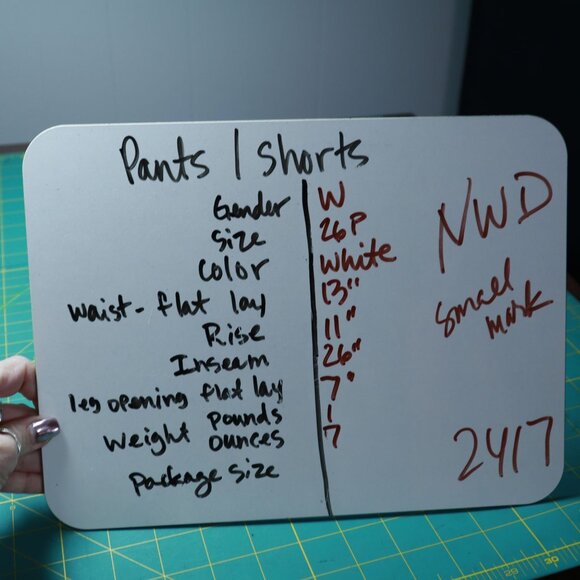 Pants | Shorts
Gender W
Size 26P
Color White
waist - flat lay 13"
Rise 11"
Inseam 26"
leg opening flat lay 7"
Weight pounds 1
ounces 7
package size
NWD
Small
mark
2417
30